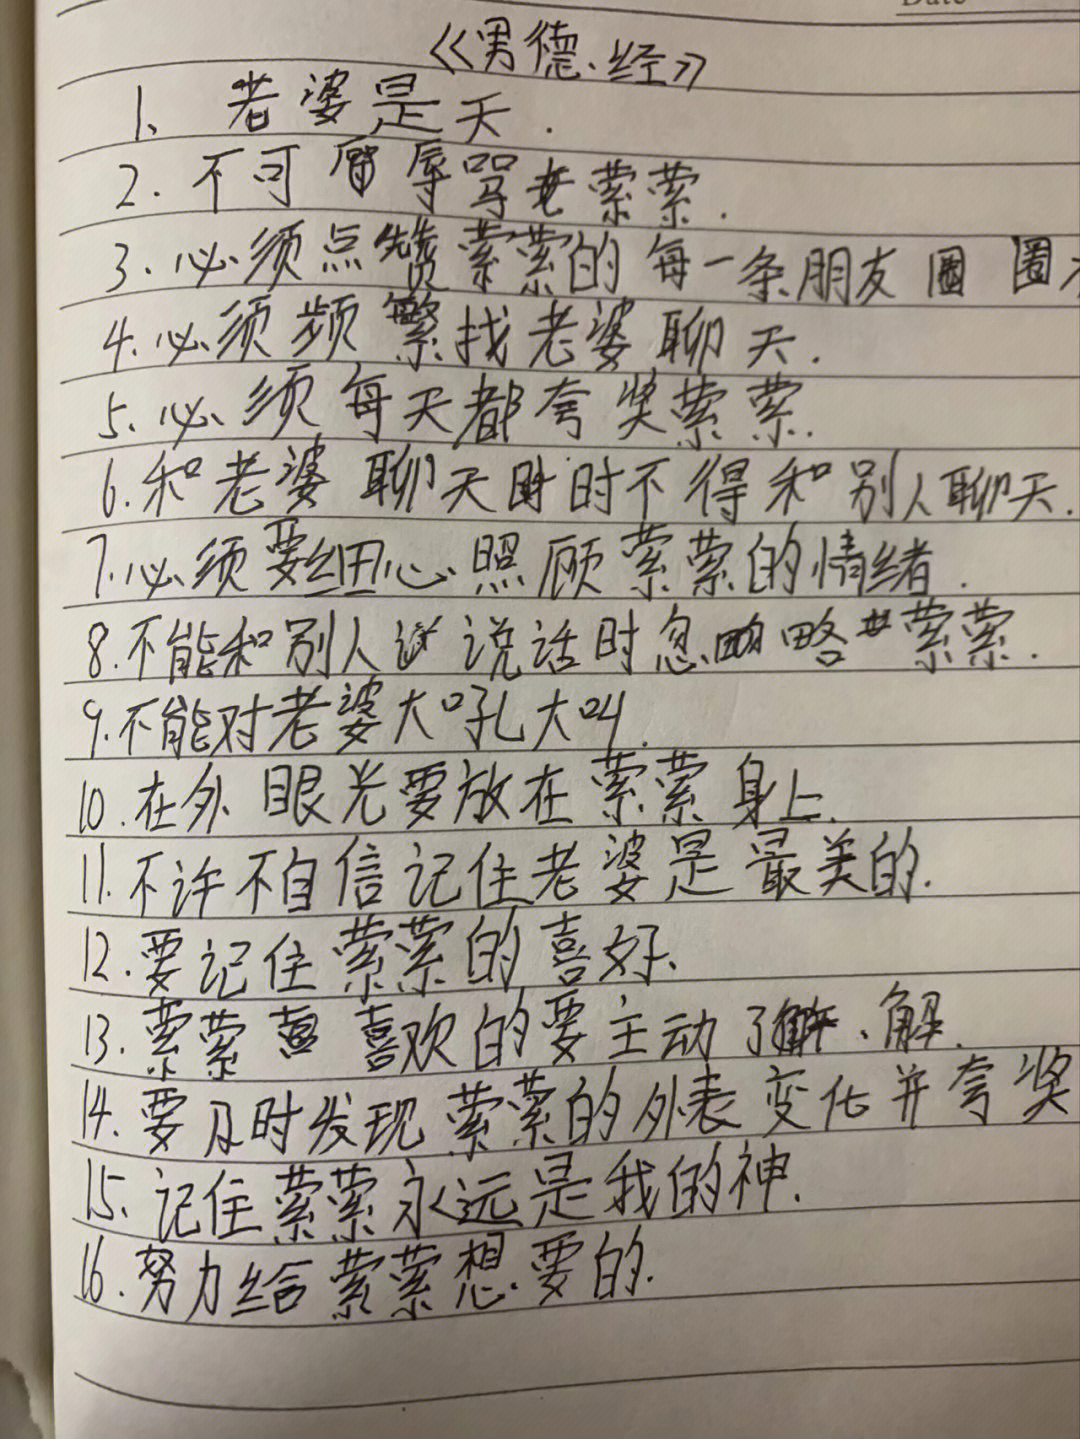 Date
《男德经》
1、老婆是天.
2.不可辱骂萦萦.
3.必须点赞萦萦的每一条朋友圈
4.必须频繁找老婆聊天.
5.必须每天都夸奖萦萦.
6.和老婆聊天时时不得和别人聊天.
7.必须要细心照顾萦萦的情绪.
8.不能和别人说话时忽略萦萦.
9.不能对老婆大吼大叫.
10.在外眼光要放在萦萦身上.
11.不许不自信记住老婆是最美的.
12.要记住萦萦的喜好.
13.萦萦喜欢的要主动了解.
14.要及时发现萦萦的外表变化并夸奖
15.记住萦萦永远是我的神.
16.努力给萦萦想要的.